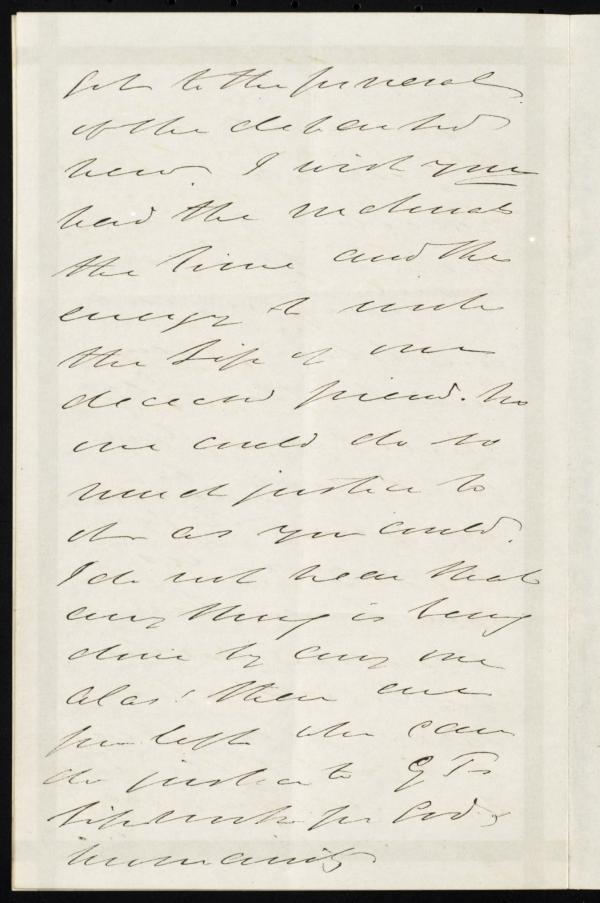 get to the funeral
of the departed
hero. I wish you
had the materials
the time and the
energy to write
the Life of our
deceased friend. No
one could do so
much justice to
it as you could.
I do not hear that
any thing is being
done by any one
alas! there are
few left who can
do justice to G Ts
life work for God &
humanity